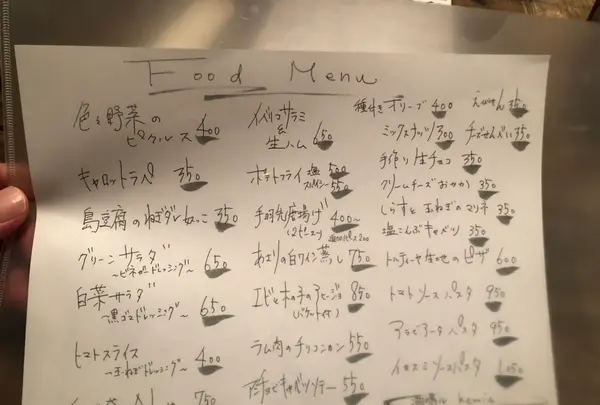 Food Menu
色々野菜の
ピクルス 400
キャロットラペ 350
島豆腐のねぎダレ奴っこ 350
グリーンサラダ
～ビネガードレッシング～ 650
白菜サラダ
～黒ゴマドレッシング～ 650
トマトスライス
～玉ねぎドレッシング～ 400
750
イベリコサラミ
&
生ハム 650
ポテトフライ 塩 500
スパイシー 550
手羽先唐揚げ 400～
(2ヶ～)
200
あさりの白ワイン蒸し 750
エビときの子のアヒージョ 850
(バゲット付)
ラム肉のチリコンカン 550
キャベツソテー 550
種付きオリーブ 400
ミックスナッツ 300
手作り生チョコ 350
クリームチーズおかか 350
しらすと玉ねぎのマリネ 350
塩こんぶキャベツ 350
トルティーヤ生地のピザ 600
トマトソースパスタ 950
アラビアータパスタ 950
イカスミソースパスタ 1,050
えびせん 350
チーズせんべい 350